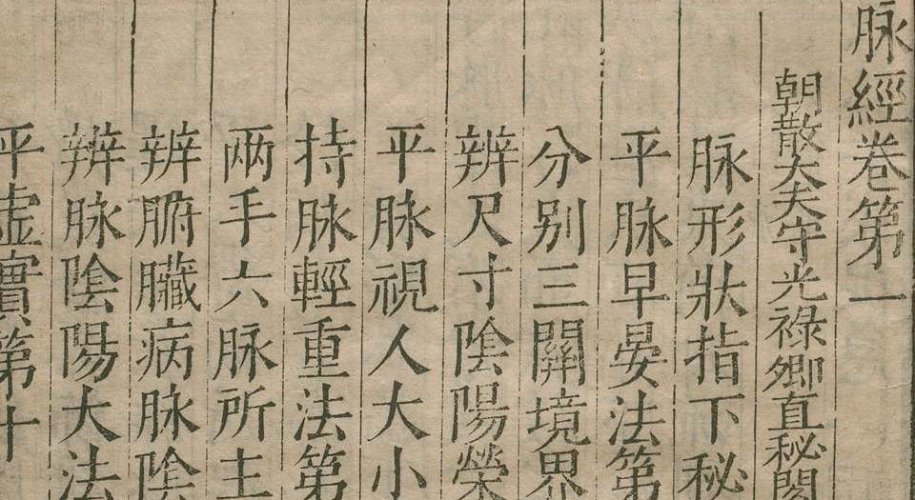 脉經卷第一
朝散大夫守光祿卿直秘閣
脉形狀指下秘
平脉早晏法第
分别三關境界
辨尺寸陰陽榮
平脉視人大小
持脉輕重法第
兩手六脉所主
辨腑臟病脉陰
辨脉陰陽大法
平虛實第十